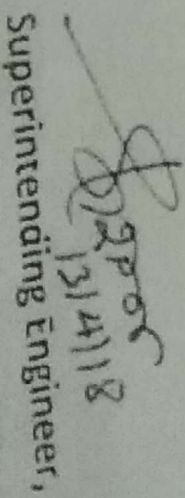 13/4/18
Superintending Engineer,